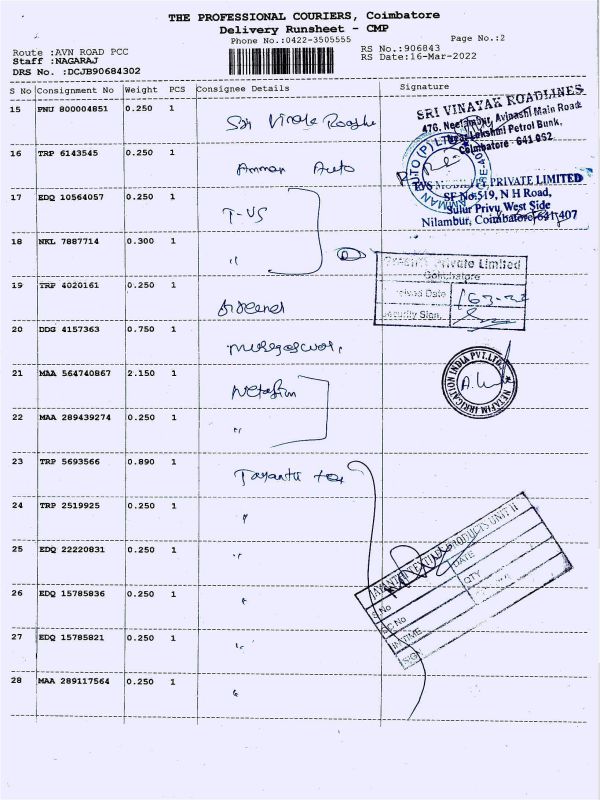 THE PROFESSIONAL COURIERS, Coimbatore
Delivery Runsheet - CMP
Phone No.:0422-3505555
Page No.:2
Route :AVN ROAD PCC
RS No.:906843
Staff :NAGARAJ
RS Date:16-Mar-2022
DRS No. :DCJB90684302
S No Consignment No Weight PCS Consignee Details Signature
15 PNU 800004851 0.250 1
16 TRP 6143545 0.250 1 Amman Auto
17 EDQ 10564057 0.250 1 T-VS
18 NKL 7887714 0.300 1 "
19 TRP 4020161 0.250 1
20 DDG 4157363 0.750 1
21 MAA 564740867 2.150 1 Netafim
22 MAA 289439274 0.250 1 "
23 TRP 5693566 0.890 1
24 TRP 2519925 0.250 1 "
25 EDQ 22220831 0.250 1 "
26 EDQ 15785836 0.250 1 "
27 EDQ 15785821 0.250 1 "
28 MAA 289117564 0.250 1 "
SRI VINAYAK ROADLINES
476, Neelambur, Avinashi Main Road
Lakshmi Petrol Bunk,
Coimbatore 641 062.
PRIVATE LIMITED
SF No:519, N H Road,
Sulur Privu West Side
Nilambur, Coimbatore-641 407
Private Limited
Coimbatore
Date
Security Sign.
NETAFIM IRRIGATION INDIA PVT.LTD.
TEXTILE PRODUCTS UNIT II
S.No
DATE
QTY
IN TIME
SIGN